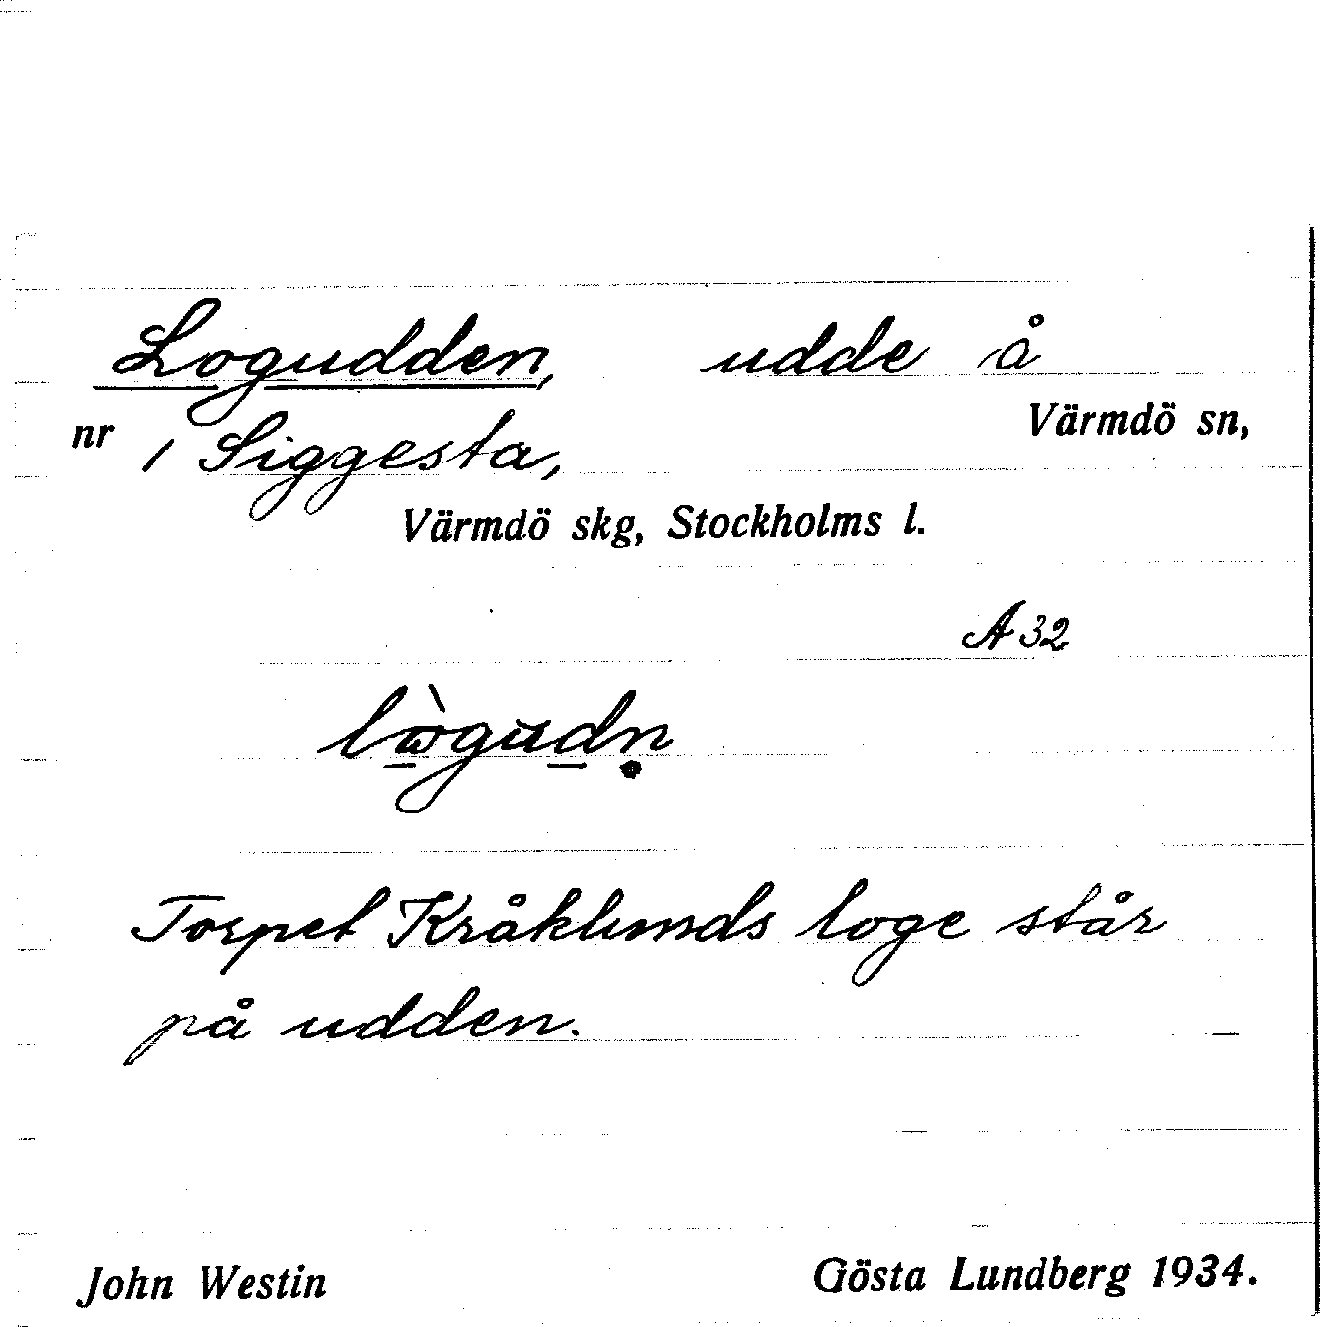 Logudden, udde å
nr 1 Siggesta, Värmdö sn,
Värmdö skg, Stockholms l.
A 32
lὼgudṇ
Torpet Kråklunds loge står
på udden.
John Westin Gösta Lundberg 1934.